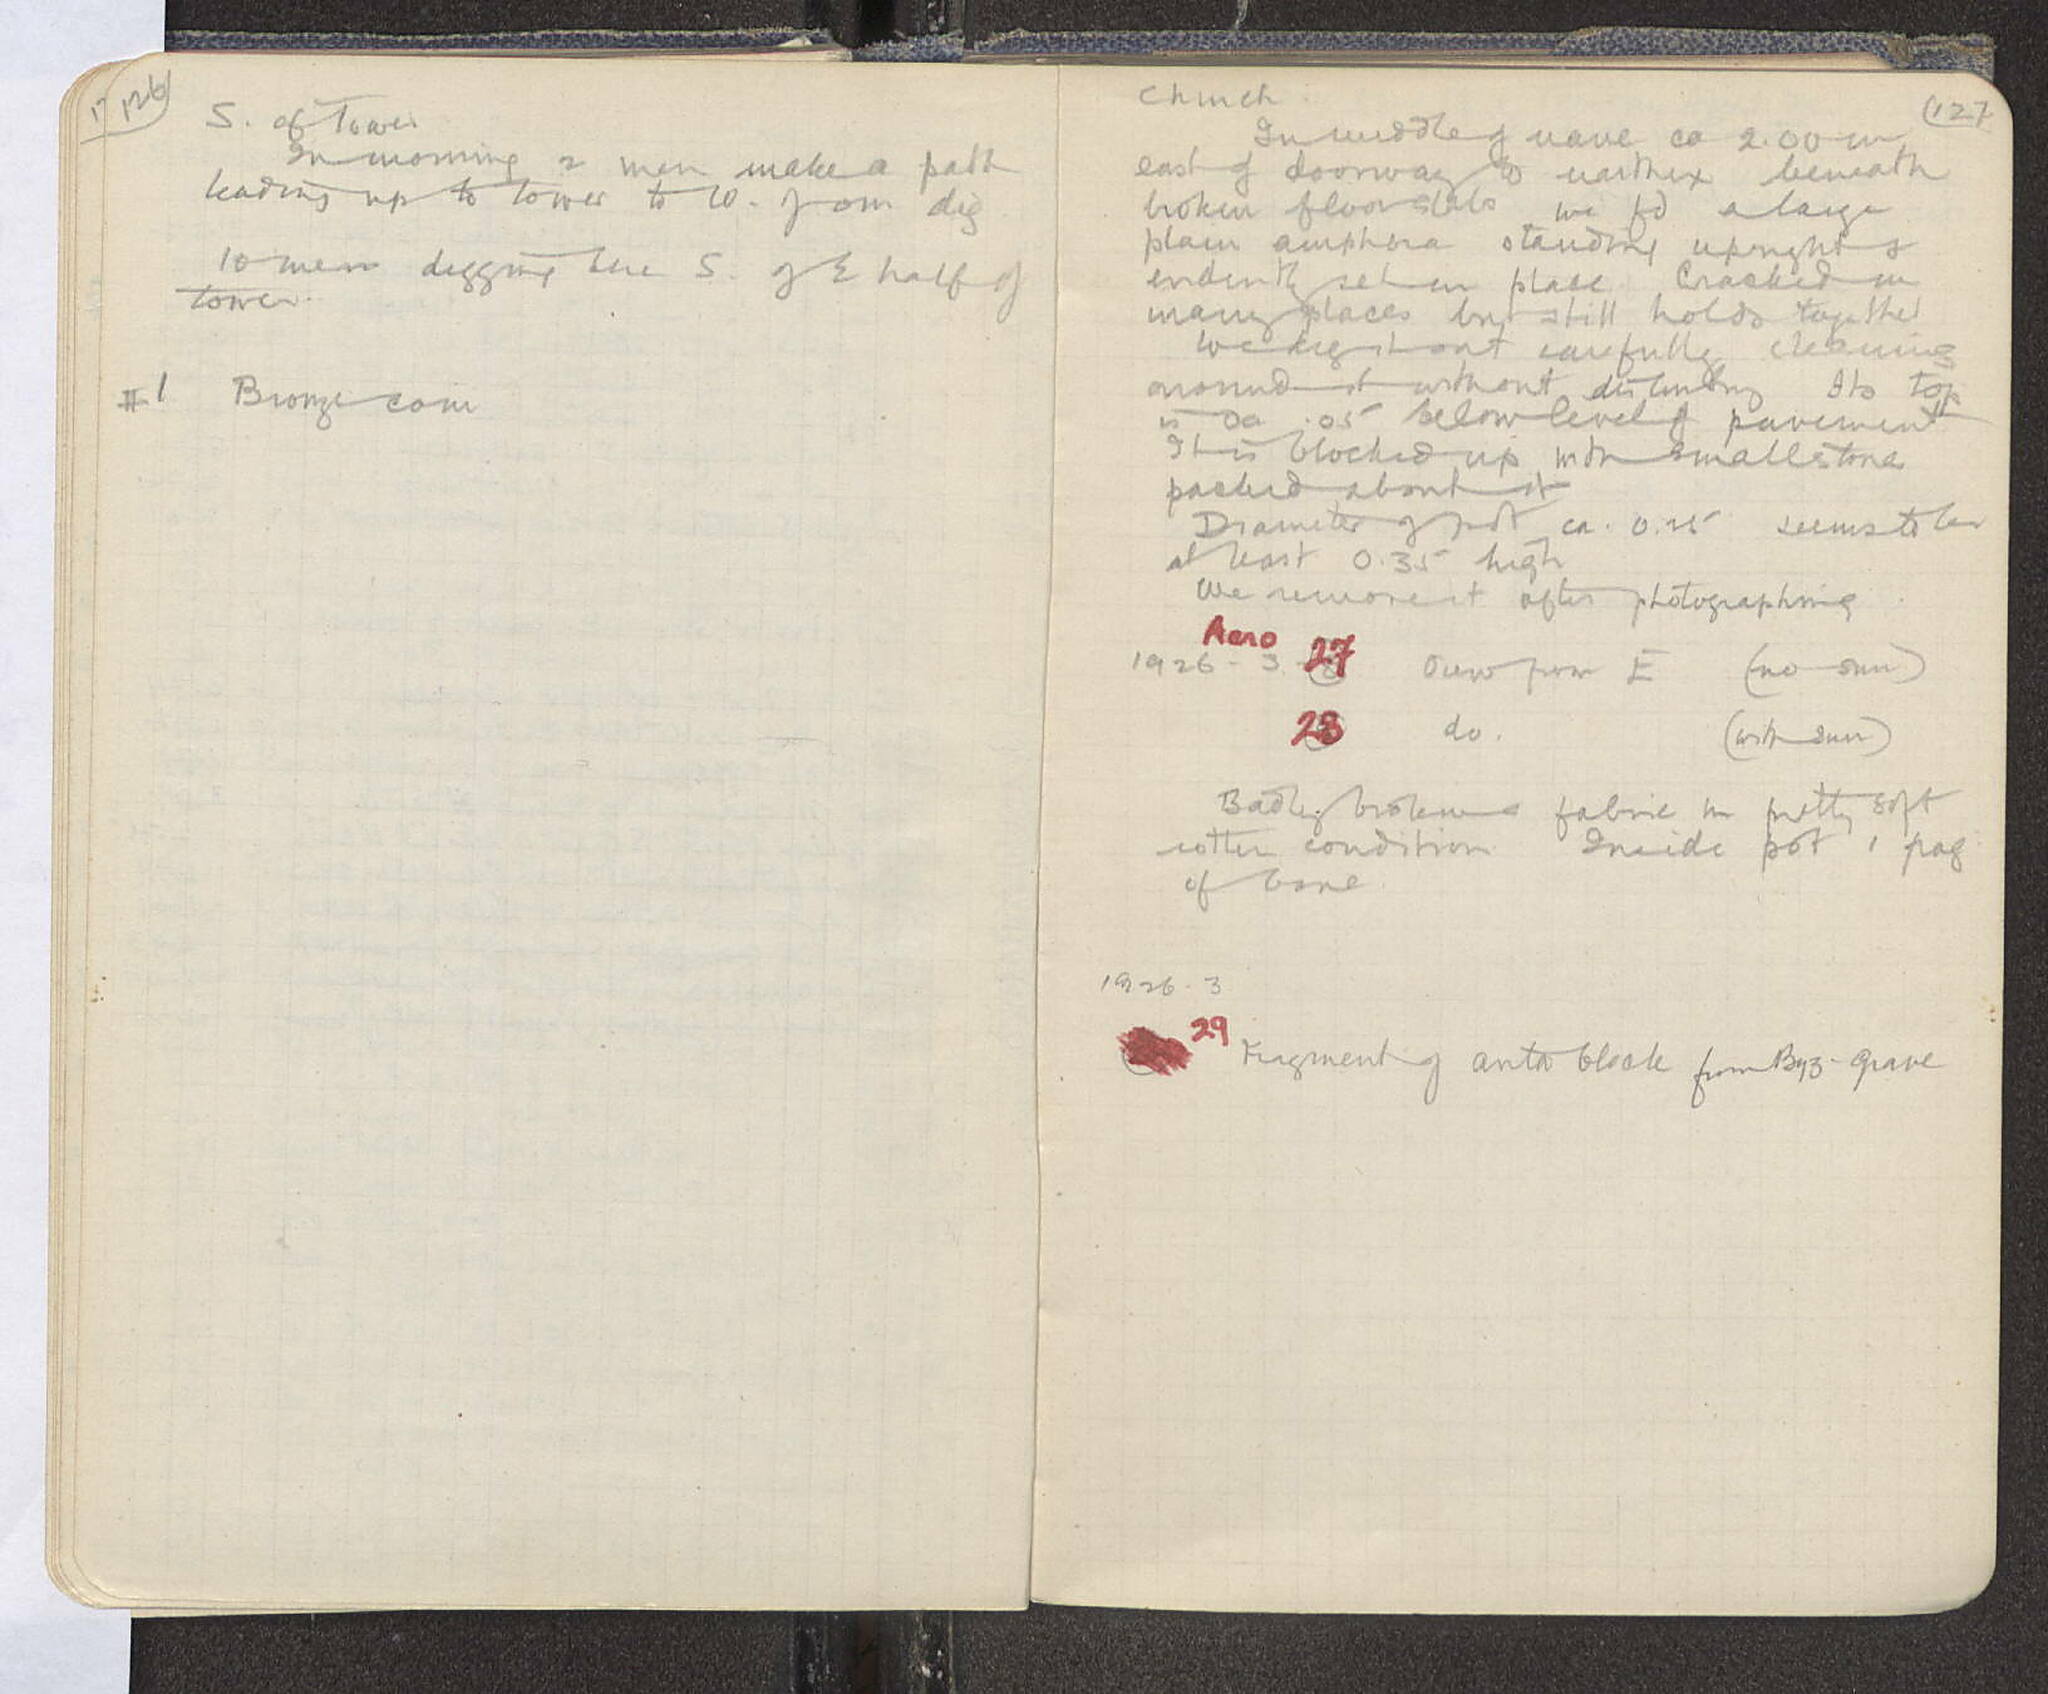 126
S. of Tower
In morning 2 men make a path
leading up to tower to W. from dig
10 men digging here S. of E half of
tower.
#1 Bronze coin
127
Church
In middle of nave ca 2.00 m
east of doorway to narthex beneath
broken floor slabs we fd a large
plain amphora standing upright &
evidently set in place. Cracked in
many places but still holds together
We dig it out carefully cleaning
around it without disturbing Its top
is ca .05 below level of pavement
It is blocked up with small stones
packed about it
Diameter of pot ca. 0.25 seems to be
at least 0.35 high
We remove it after photographing
Aero
1926 - 3 27 View from E (no sun)
28 do. (with sun)
Badly broken & fabric in pretty soft
rotten condition Inside pot 1 frag
of bone.
1926 - 3
29 Fragment of anta block from Byz - grave